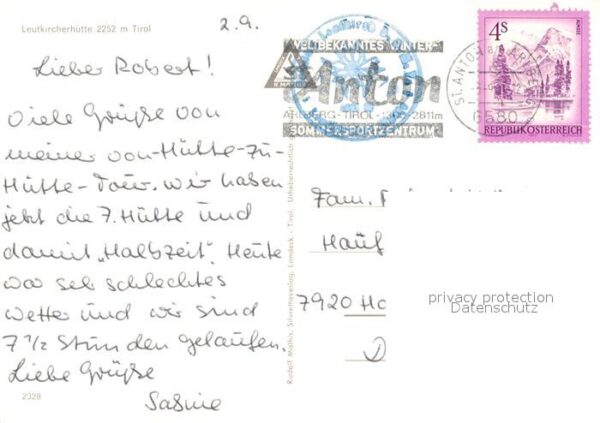 Leutkircherhütte 2252 m Tirol
2.9.
Lieber Robert!
Viele Grüße von
meiner von-Hütte-zu-
Hütte-Tour. Wir haben
jetzt die 7. Hütte und
damit "Halbzeit". Heute
war seh schlechtes
Wetter und wir sind
7 1/2 Stunden gelaufen.
Liebe Grüße
Sabine
2328
Rudolf Mathis, Silvrettaverlag, Landeck - Tirol Urheberrechtlich
WELTBEKANNTES WINTER-
St. Anton
ARLBERG-TIROL-1304-2811m
SOMMERSPORTZENTRUM
ST. ANTON a. ARLBERG
6580
4S
REPUBLIK ÖSTERREICH
Fam.
Hauf
7920 He
D
privacy protection
Datenschutz